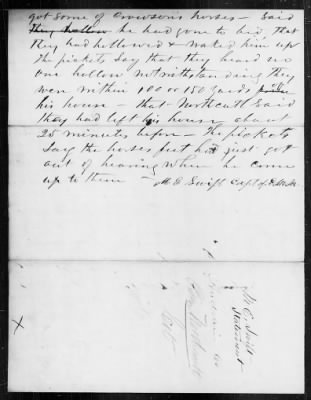 got some of Crowsons horses - Said
they hollow he had gone to bed, that
they had hollowed & waked him up
the pickets say that they heard no
one hollow notwithstanding they
were within 100 or 150 yards
his house - that Northcutt said
they had left his house about
25 minutes before - the pickets
say the horses feet had just got
out of hearing when he come
up to them - M. G. Swift Capt of
M. G. Swift
Statement